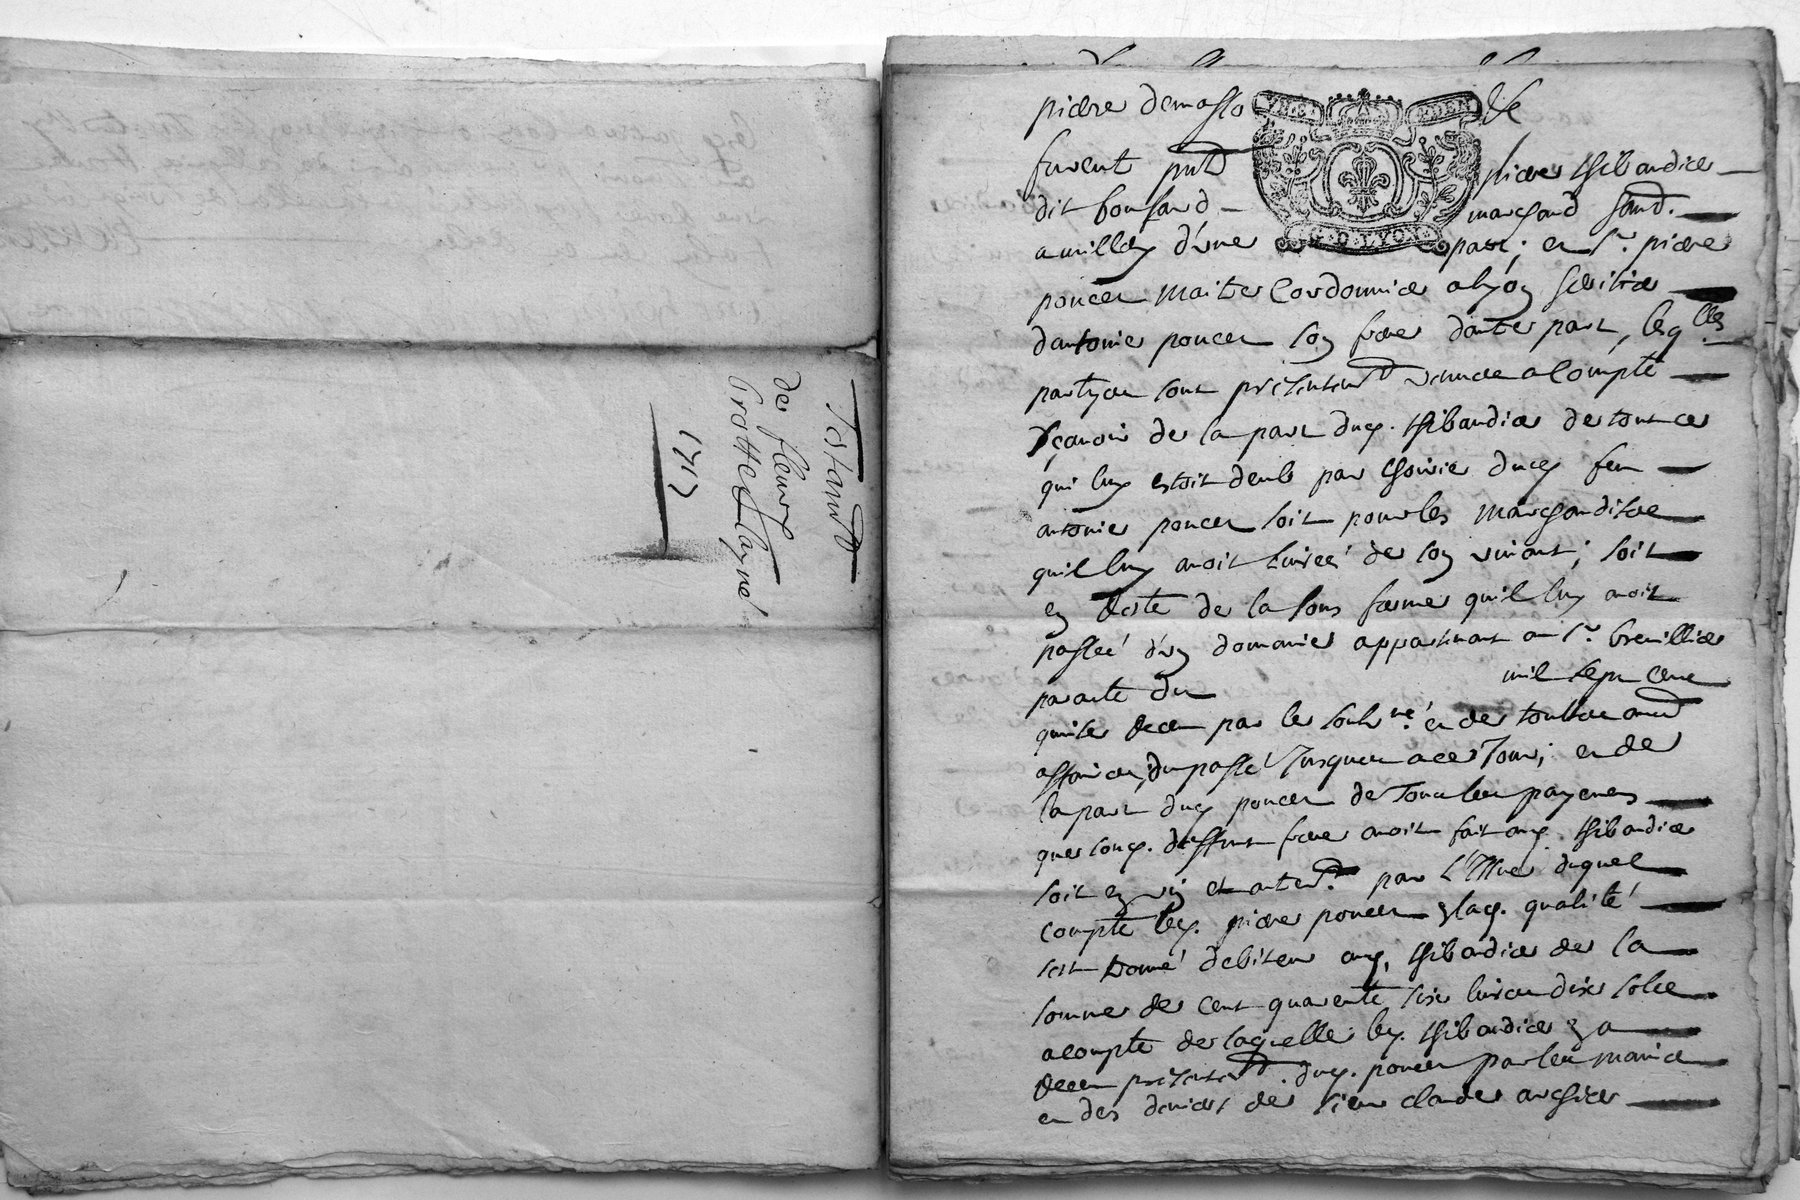 Testamt
de fleurye
Grotte Layné
1717
pierre demasso
G. D. LYON
furent pnt pierre thibaudier
dit bonfard marchand
a milley d'une part; et sr. pierre
poncet maitre Cordonnier a lyon heritier
d'antoine poncet son frere d'autre part, lesqlles
partyes sont presentemt venues a Compte
sçavoir de la part dud. thibaudier de tout ce
qui luy estoit deub par l'hoirie dud feu
antoine poncet soit pour les marchandises
qu'il luy avoit livréé de son vivant; soit
en reste de la sous ferme qu'il luy avoit
passéé d'un domaine appartenant au sr. breuillier
par acte du mil sept cent
quinze receu par le soubsne. et de touttes autres
affaires, du passé Jusques a ce Jour; et de
la part dud poncet de Tous les payemens
que soud. deffunt frere avoit fait aud. thibaudier
soit en vin et autremt. par L'Issue duquel
compte led. pierre poncet en lad. qualité
sest trouvé debiteur aud. thibaudier de la
somme de cent quarente six livres dix solz
a compte de laquelle led. thibaudier en a
receu presentemt. dud. poncet par les mains
et des deniers de sieur claude archier